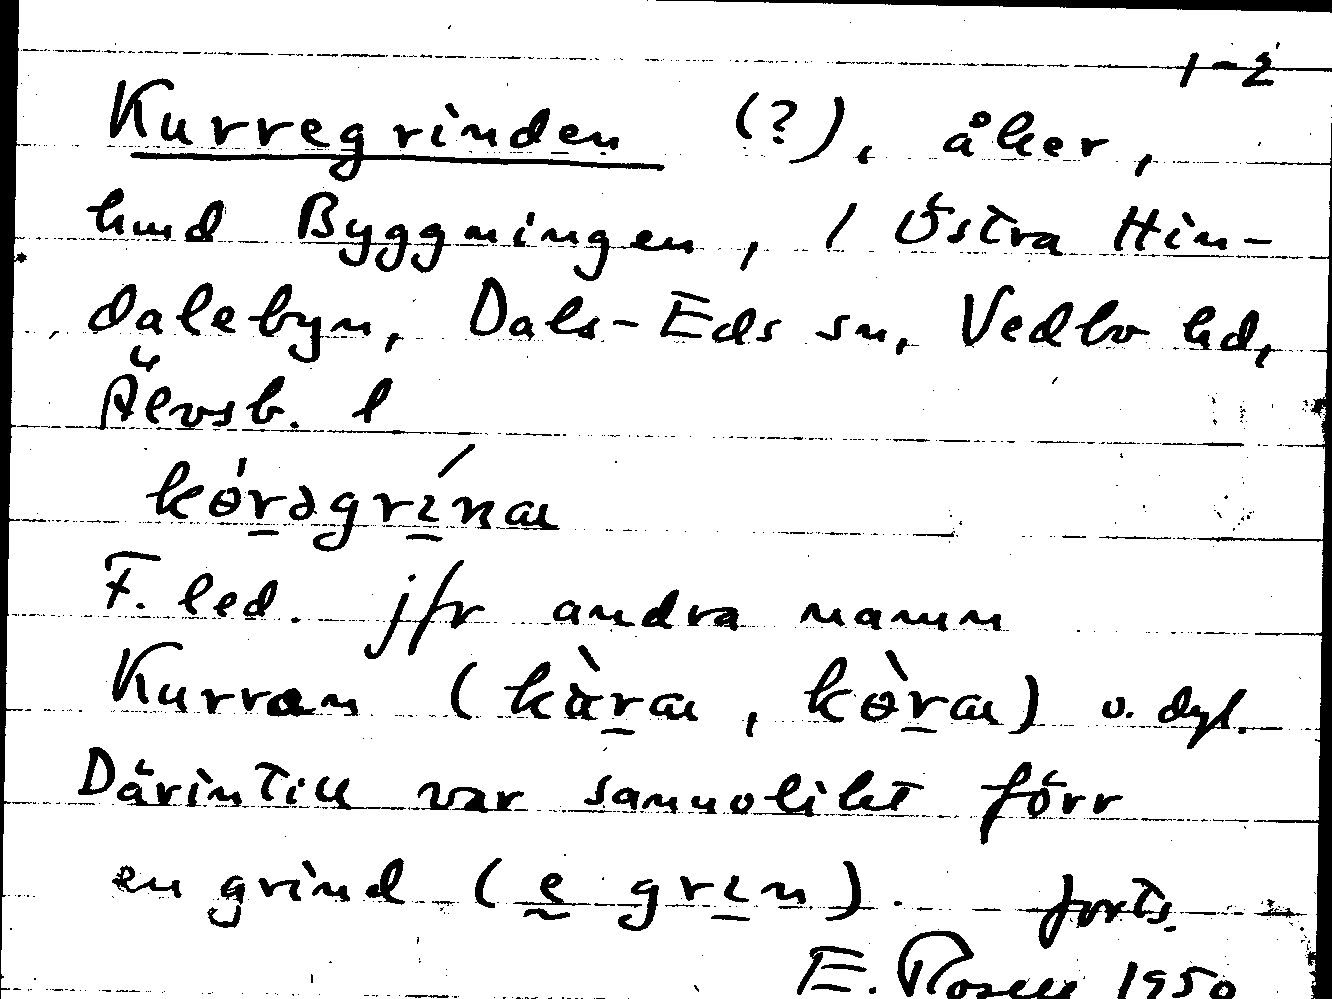 1-2
Kurregrinden (?), åker,
hmd Byggningen, i Östra Hin-
dalebyn, Dals-Eds sn, Vedbo hd,
Älvsb. l
kɵ́rəgrı́na
F. led. jfr andra namn
Kurran (kùra, kɵ̀ra) o. dyl.
Därintill var sannolikt förr
en grind (e grın). forts.
E. Rosell 1950